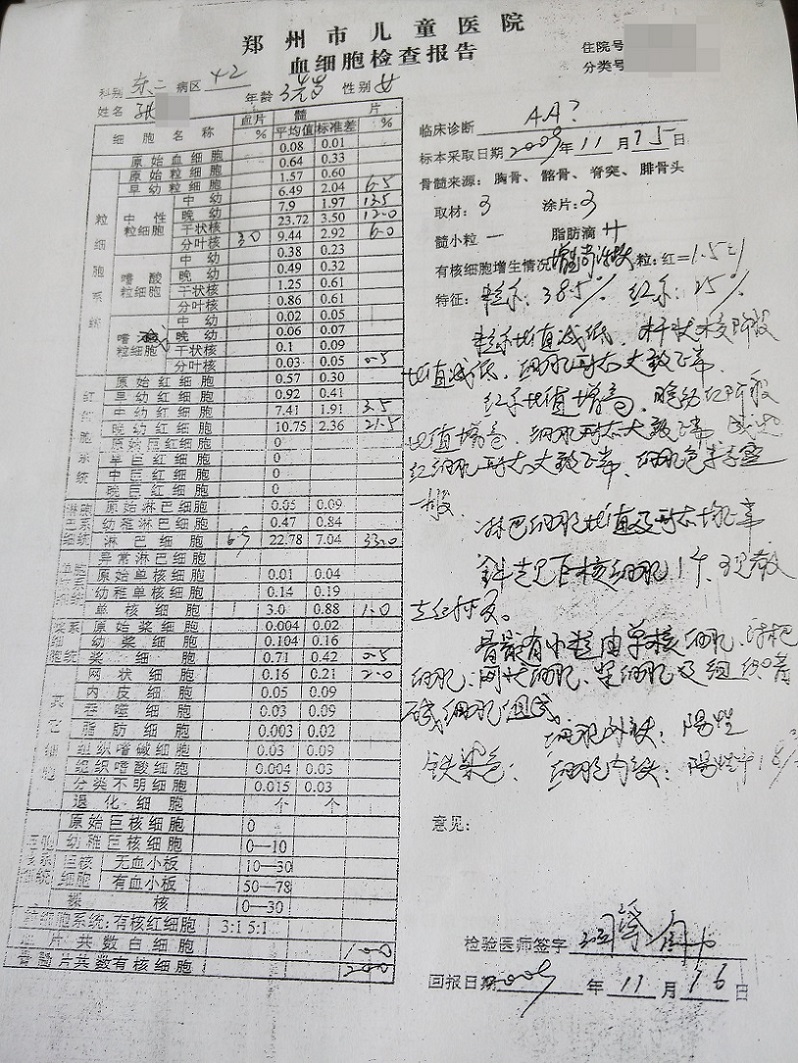 郑州市儿童医院
血细胞检查报告
住院号
分类号
科别 东二 病区 42
姓名 年龄 3岁 性别 女
细胞名称 血片 % 髓 片
平均值 标准差 %
原始血细胞 0.08 0.01
原始粒细胞 0.64 0.33
早幼粒细胞 1.57 0.60
粒细胞系统
中性粒细胞 中幼 6.49 2.04 6.5
晚幼 7.9 1.97 13.5
干状核 23.72 3.50 12.0
分叶核 30 9.44 2.92 6.0
嗜酸粒细胞 中幼 0.38 0.23
晚幼 0.49 0.32
干状核 1.25 0.61
分叶核 0.86 0.61
粒细胞 中幼 0.02 0.05
晚幼 0.06 0.07
干状核 0.1 0.09
分叶核 0.03 0.05 0.5
原始红细胞 0.57 0.30
早幼红细胞 0.92 0.41
中幼红细胞 7.41 1.91 3.5
晚幼红细胞 10.75 2.36 21.5
原始巨红细胞 0
早巨红细胞 0
中巨红细胞 0
晚巨红细胞 0
原始淋巴细胞 0.05 0.09
幼稚淋巴细胞 0.47 0.84
淋巴细胞 22.78 7.04 33.0
异常淋巴细胞
原始单核细胞 0.01 0.04
幼稚单核细胞 0.14 0.19
单核细胞 3.0 0.88 1.0
原始浆细胞 0.004 0.02
幼浆细胞 0.104 0.16
浆细胞 0.71 0.42 0.5
其它细胞
网状细胞 0.16 0.21 2.0
内皮细胞 0.05 0.09
吞噬细胞 0.03 0.09
脂肪细胞 0.003 0.02
组织嗜碱细胞 0.03 0.09
组织嗜酸细胞 0.004 0.03
分类不明细胞 0.015 0.03
退化细胞 个 个
原始巨核细胞 0
幼稚巨核细胞 0—10
巨核细胞 无血小板 10—30
有血小板 50—78
裸核 0—30
粒细胞系统:有核红细胞 3:1 5:1
血片共数白细胞 100
骨髓片共数有核细胞 200
临床诊断 AA?
标本采取日期 2009年11月15日
骨髓来源: 胸骨、髂骨、脊突、腓骨头
取材: 3 涂片: 3
髓小粒 一 脂肪滴 卄
有核细胞增生情况 粒:红=1.5:1
特征: 粒系:38.5% 红系:25%
粒系比值减低,杆状核阶段
比值减低,细胞形态大致正常。
红系比值增高,晚幼红阶段
比值增高,细胞形态大致正常,成熟
红细胞形态大致正常,细胞色素充盈
淋巴细胞比值及形态均正常
全片巨核细胞1个
骨髓有小粒由单核细胞、浆
细胞、网状细胞、及组织嗜
碱细胞组成
铁染色: 细胞外铁: 阳性
细胞内铁: 阳性率
意见:
检验医师签字
回报日期 2009年11月16日